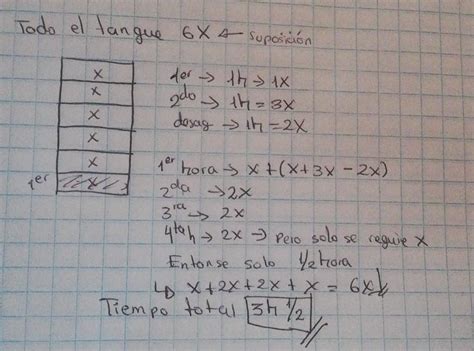 Todo el tanque 6X ← suposición
x
x
x
x
x
1er x
1er → 1h → 1X
2do → 1h = 3X
desag → 1h = 2X
1er hora → x + (x + 3x - 2x)
2da → 2X
3ra → 2X
4ta h → 2X → Pero solo se requie X
Entonse solo 1/2 hora
↳ x + 2x + 2x + x = 6x
Tiempo total 3h 1/2